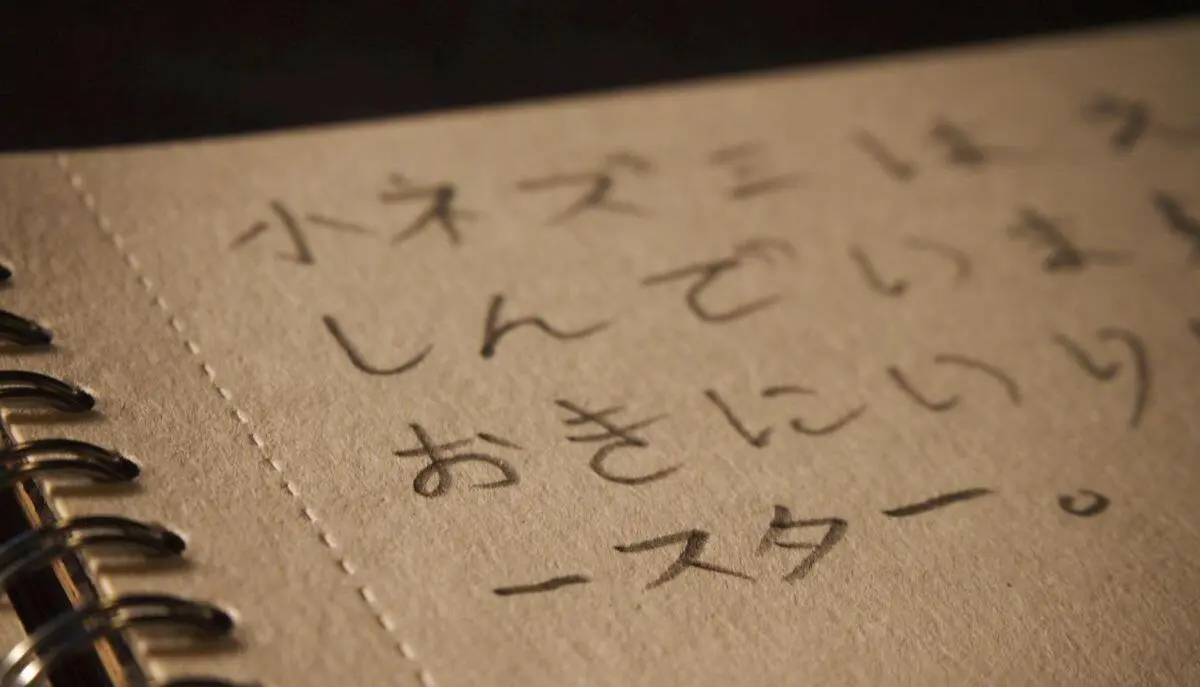 小ネズミはえ
しんでいま
おきにいり
ースター。